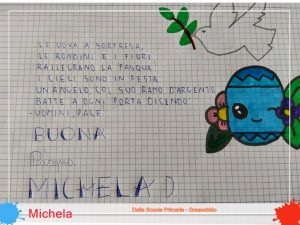 LE UOVA A SORPRESA,
LE RONDINI E I FIORI
RALLEGRANO LA PASQUA!
I CIELI SONO IN FESTA.
UN ANGELO COL SUO RAMO D'ARGENTO
BATTE A OGNI PORTA DICENDO:
-UOMINI, PACE!
BUONA
MICHELA D.
Michela
Dalle Scuole Primarie - Grassobbio